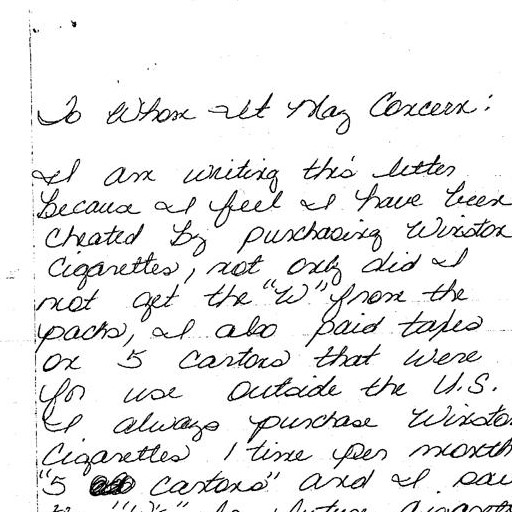 To Whom It May Concern:
I am writing this letter
because I feel I have been
cheated by purchasing Winston
Cigarettes, not only did I
not get the "W" from the
packs, I also paid taxes
on 5 cartons that were
for use outside the U.S.
I always purchase Winston
Cigarettes 1 time per month
"5 cartons" and I